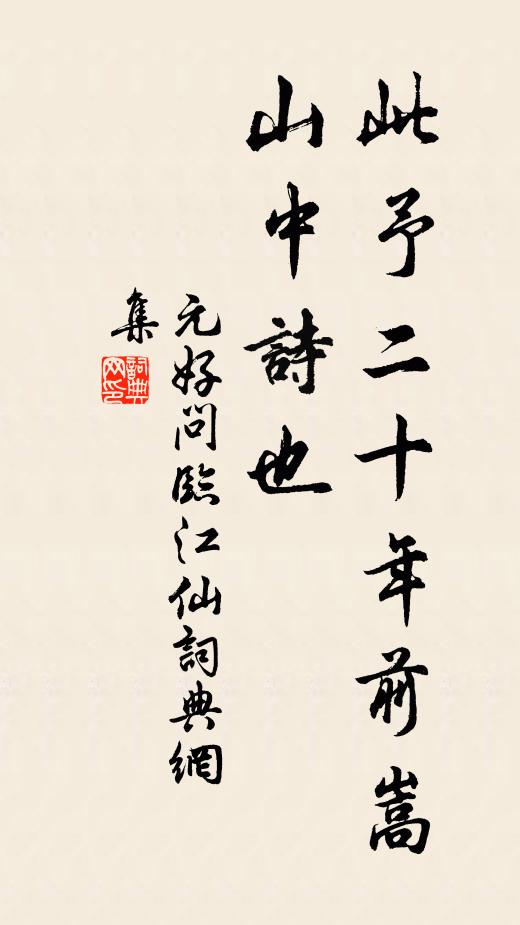 此予二十年前嵩
山中詩也
元好問臨江仙詞典網
集
詞典
网印